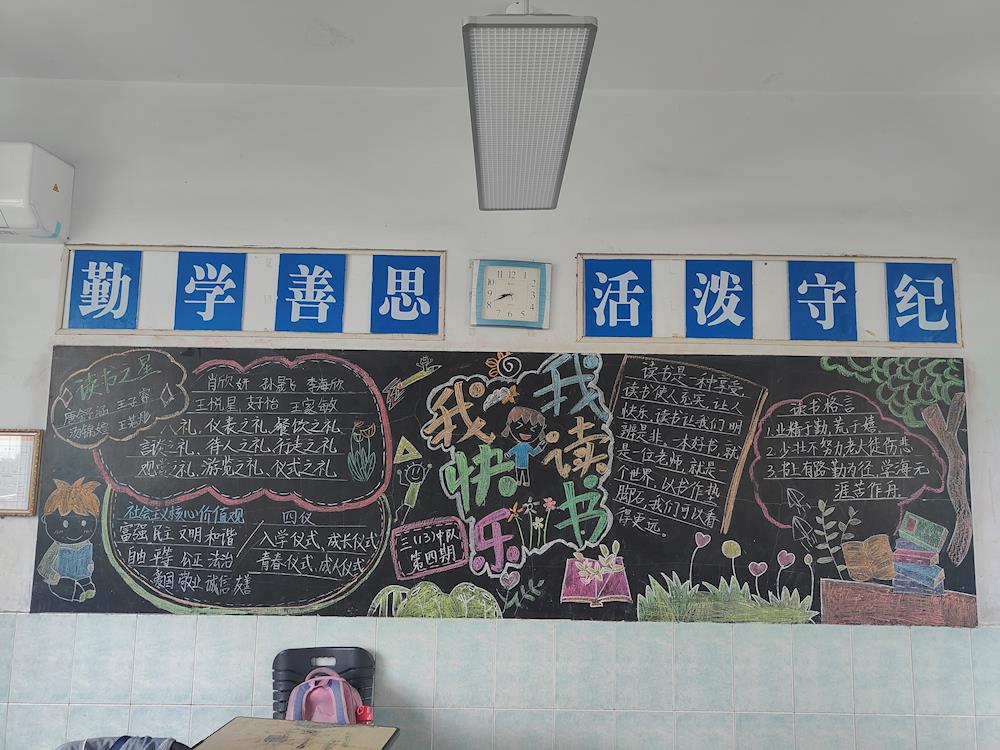 勤学善思
活泼守纪
读书之星
王子睿
肖欣妍 孙景飞 李海欣
王悦星 好怡 王宴敏
八礼,仪表之礼,餐饮之礼
言谈之礼、待人之礼、行走之礼
观赏之礼、游览之礼、仪式之礼
社会主义核心价值观
富强 民主 文明 和谐
自由 平等 公正 法治
爱国 敬业 诚信 友善
四仪
入学仪式,成长仪式
青春仪式,成人仪式
三(13)中队
第四期
我读书
我快乐
读书是一种享受,
读书使人充实,让人
快乐,读书让我们明
辨是非,一本好书,就
是一位老师,就是一
个世界,以书作垫
脚石,我们可以看
得更远。
读书格言
1.业精于勤,荒于嬉
2.少壮不努力老大徒伤悲
3.书山有路勤为径,学海无
涯苦作舟。